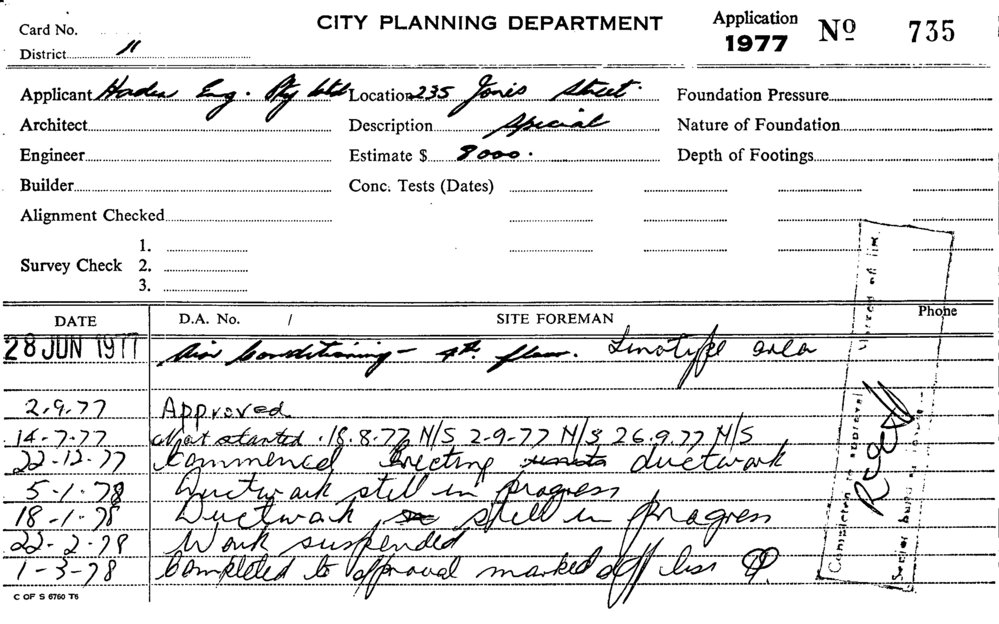 Card No.
CITY PLANNING DEPARTMENT
Application
1977 Nº 735
District 11
Applicant Haden Eng. Pty Ltd Location 235 Jones Street. Foundation Pressure
Architect Description Special Nature of Foundation
Engineer Estimate $ 8000. Depth of Footings
Builder Conc. Tests (Dates)
Alignment Checked
1.
Survey Check 2.
3.
DATE D.A. No. / SITE FOREMAN Phone
28 JUN 1977 Air Conditioning - 4th floor. Linotype area
2.9.77 Approved
14-7-77 Not started. 18.8.77 N/S 2-9-77 N/S 26.9.77 N/S
22-12-77 Commenced Erecting ductwork
5-1-78 Ductwork still in progress
18-1-78 Ductwork still in progress
22-2-78 Work suspended
1-3-78 Completed to approval marked off
C OF S 6760 T6
Completed to approval
Senior building